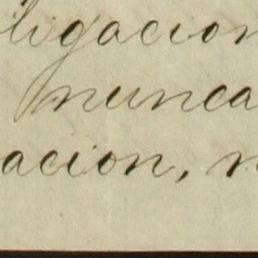 ligacion
nunca
acion, n